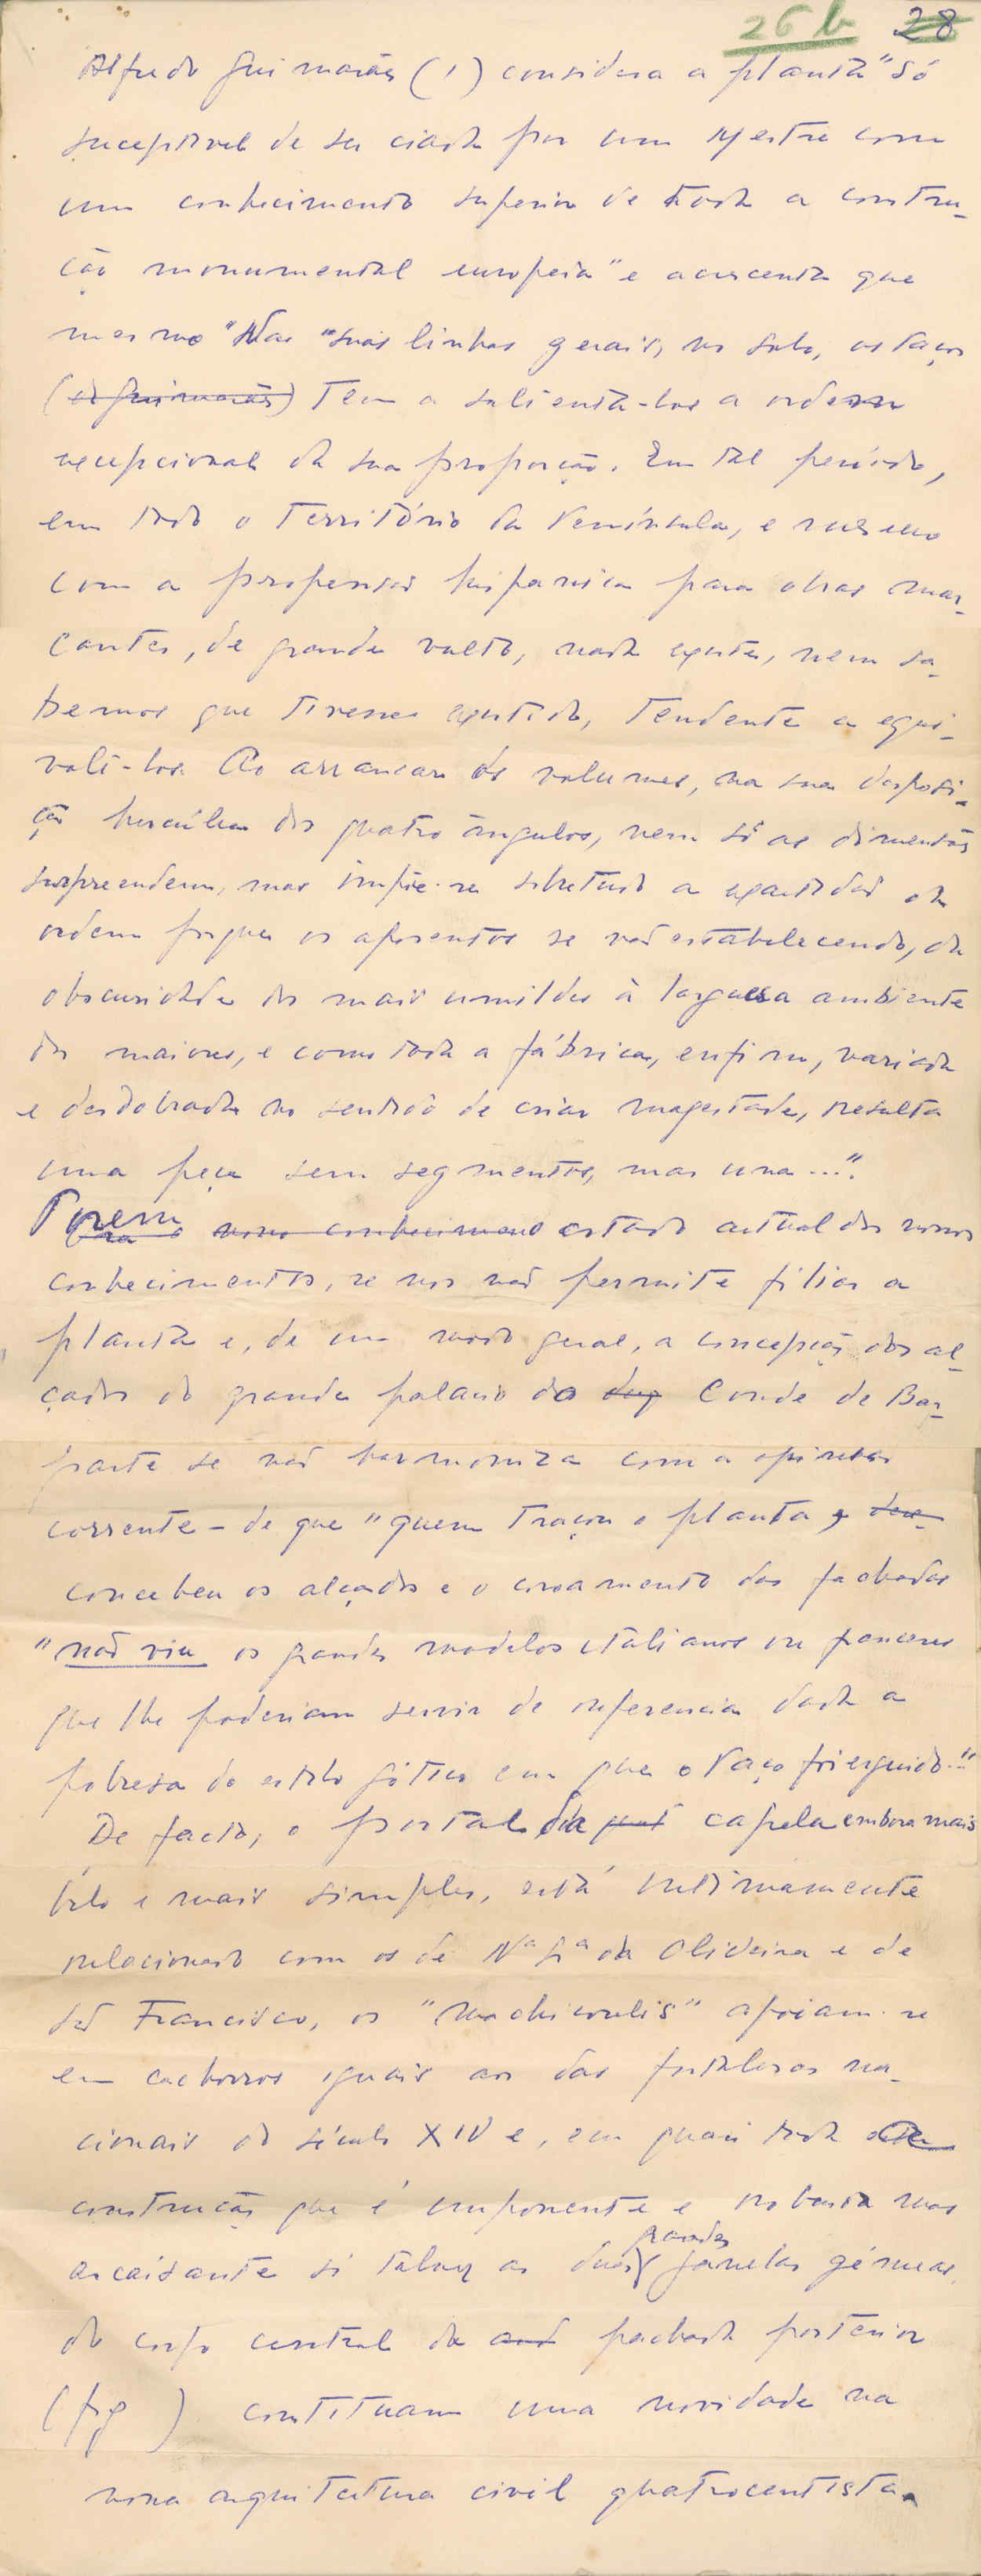 26 b 28
Alfredo Guimarães (1) considera a planta "só
suceptivel de ser criada por um Mestre com
um conhecimento superior de toda a constru-
ção monumental europeia" e acrescenta que
mesmo "Nas "suas linhas gerais, no solo, os Paços
(de Guimarães) Tem a salientá-los a ordem
excepcional da sua proporção. Em tal período,
em todo o Território da Península, e mesmo
com a propensão hispanica para obras mar-
cantes, de grande vulto, nada existe, nem sa-
bemos que tivesse existido, Tendente a equi-
valê-los. Ao arrancar dos volumes, na sua disposi-
ção hercúlea dos quatro ângulos, nem só as dimensões
surpreendem, mas impõe-se sobretudo a exactidão da
ordem porque os aposentos se vão estabelecendo, da
obscuridade dos mais umildes à larguesa ambiente
dos maiores, e como toda a fábrica, enfim, variada
e desdobrada no sentido de criar magestade, resulta
uma peça sem segmentos, mas una..."
Porem o nosso conhecimento estado actual dos nossos
conhecimentos, se nos não permite filiar a
planta e, de um modo geral, a concepção dos al-
çados do grande palacio do duq Conde de Bar-
parte se não harmoniza com a opinião
corrente - de que "quem traçou a planta e
concebeu os alçados e o coroamento das fachadas
"não viu os grandes modelos italianos ou franceses
que lhe poderiam servir de referencia dada a
pobresa do estilo gótico em que o Paço foi erguido..."
De facto, o portal da capela embora mais
belo e mais simples, está intimamente
relacionado com os de Nª Sª da Oliveira e de
São Francisco, os "machicoulis" apoiam-se
em cachorros iguais aos das fortalesas na-
cionais do século XIV e, em quasi toda
construção que é imponente e robusta mas
arcaisante só talvez as duas grandes janelas gémeas
do corpo central da fachada posterior
(fig ) constituam uma novidade na
nossa arquitectura civil quatrocentista.